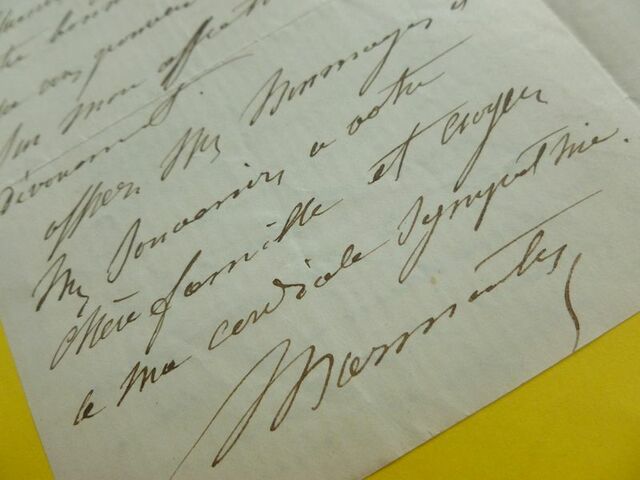 bonne
vous prouver
sur mon affection
dévouement.
offrez mes hommages et
mes souvenirs a votre
chère famille et croyez
a ma cordiale sympathie.